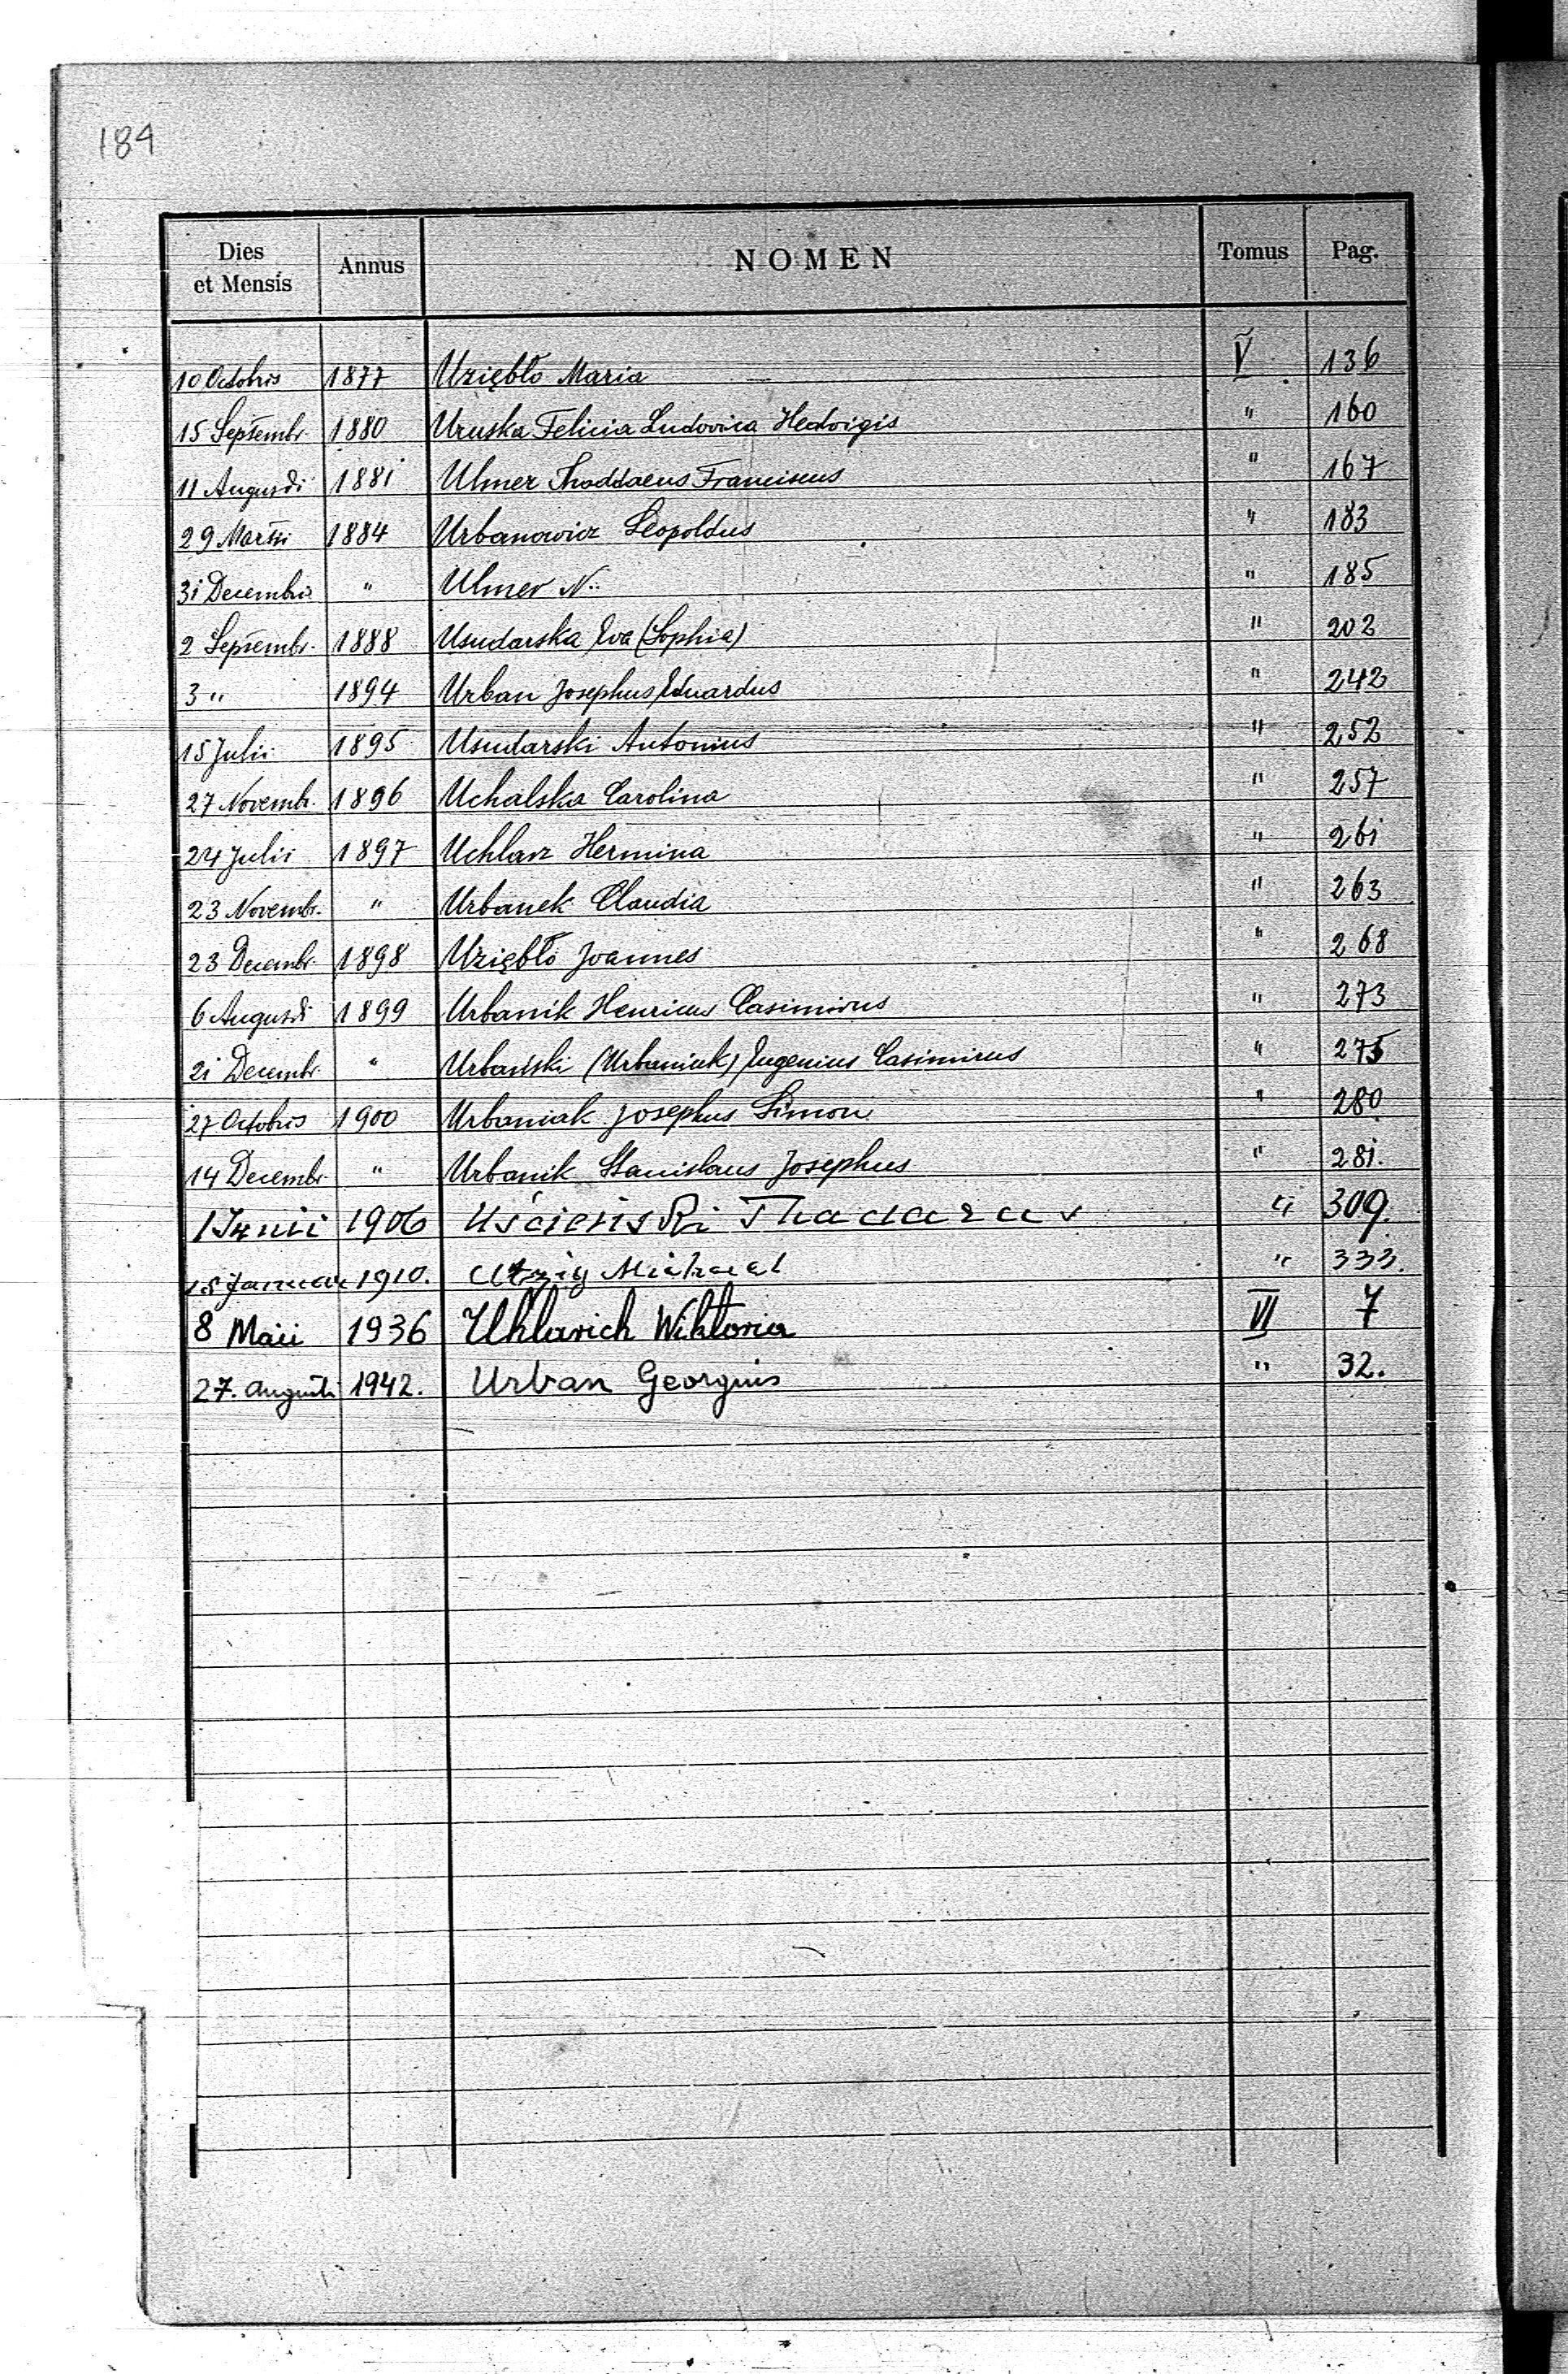 184
Dies et Mensis Annus NOMEN Tomus Pag.
10 Octobris 1877 Uziębło Maria V 136
15 Septembr. 1880 Uruska Felicia Ludovica Hedvigis " 160
11 Augusti 1881 Ulmer Thaddaeus Franciscus " 167
29 Martii 1884 Urbanowicz Leopoldus " 183
31 Decembris " Ulmer N.. " 185
2 Septembr. 1888 Usudarska Eva (Sophia) " 202
3 " 1894 Urban Josephus Eduardus " 242
15 Julii 1895 Usudarski Antonius " 252
27 Novembr. 1896 Uchalska Carolina " 257
24 Julii 1897 Uchlarz Hermina " 261
23 Novembr. " Urbanek Claudia " 263
23 Decembr. 1898 Uziębło Joannes " 268
6 Augusti 1899 Urbanik Henricus Casimirus " 273
21 Decembr. " Urbański (Urbaniak) Eugenius Casimirus " 275
27 Octobris 1900 Urbaniak Josephus Simon " 280
14 Decembr. " Urbanik Stanislaus Josephus " 281.
1 Junii 1906 Uścieński Thadaeus " 309.
18 Januar 1910. Utzig Michael " 333.
8 Maii 1936 Uhlarich Wiktoria VI 7
27. Augusti 1942. Urban Georgius " 32.